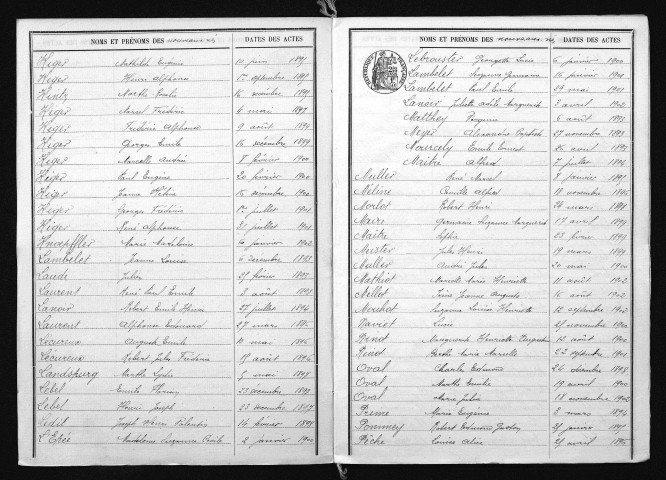 NOMS ET PRÉNOMS DES nouveaux nés DATES DES ACTES
Higer Mathilde Eugénie 10 juin 1891
Higer Henri Alphonse 15 septembre 1891
Hintz Marthe Emilie 16 décembre 1891
Higer Marcel Frédéric 4 mai 1897
Higer Frédéric Alphonse 9 août 1898
Higer Georges Emile 15 décembre 1899
Higer Marcelle Andrée 8 février 1900
Higer Paul Eugène 20 février 1900
Higer Jeanne Hélène 15 décembre 1900
Higer Georges Frédéric juillet 1901
Higer René Alphonse 31 juillet 1901
Knoepffler Marie Madeleine 6 janvier 1902
Lambelet Jeanne Louise 6 décembre 1893
Laude Julien 27 février 1893
Laurent René Paul Emile 8 août 1893
Lanoir Robert Emile Henri 27 juillet 1894
Laurent Alphonse Edouard 27 mars
Lécureux Auguste Emile 10 mai 1896
Lécureux Robert Jules Frédéric 19 août 1896
Landspurg Marthe Lydie 8 mai 1897
Lebel Emile Florian 23 décembre 1897
Lebel Henri Joseph 23 décembre 1897
Ledit Joseph Henri Valentin 14 février 1898
L'Ehée Madeleine Suzanne Cécile 2 janvier 1900
NOMS ET PRÉNOMS DES nouveaux-nés DATES DES ACTES
Lebrouster Georgette Lucie 6 janvier 1900
Lambelet Suzanne Germaine 16 janvier 1901
Lambelet Paul Emile 29 mai 1901
Lanoir Juliette Adèle Marguerite 8 avril 1902
Matthey Benjamin 6 août 1893
Meyer Alexandre Baptiste 27 novembre 1893
Nourcely Emile Ernest avril 1895
Maître Alfred 7 juillet 1896
Muller René Marcel 8 janvier 1897
Méline Camille Alfred 18 novembre 1896
Morlot Robert Henri 26 mars 1898
Maire Germaine Suzanne Marguerite 15 avril 1899
Maître Sophie 23 février 1899
Meister Jules Henri 19 mars 1899
Muller André Jules 20 mai 1900
Mathiot Marcelle Marie Henriette 11 août 1902
Millot Loïs Jeanne Auguste 16 août 1902
Mouhot Suzanne Louise Henriette 12 septembre 1902
Naviet Lucie 27 novembre 1900
Ninot Marguerite Henriette 12 août 1900
Ninot Berthe Marie Marcelle 22 septembre 1901
Oval Charles Edmond 26 décembre 1898
Oval Marthe Emilie 19 avril 1900
Oval Marie Julia 18 novembre 1902
Prême Marie Eugénie 3 mars 1894
Pommey Robert Edmond Gustave 27 janvier 1897
Pêche Louise Aline 27 avril 1895